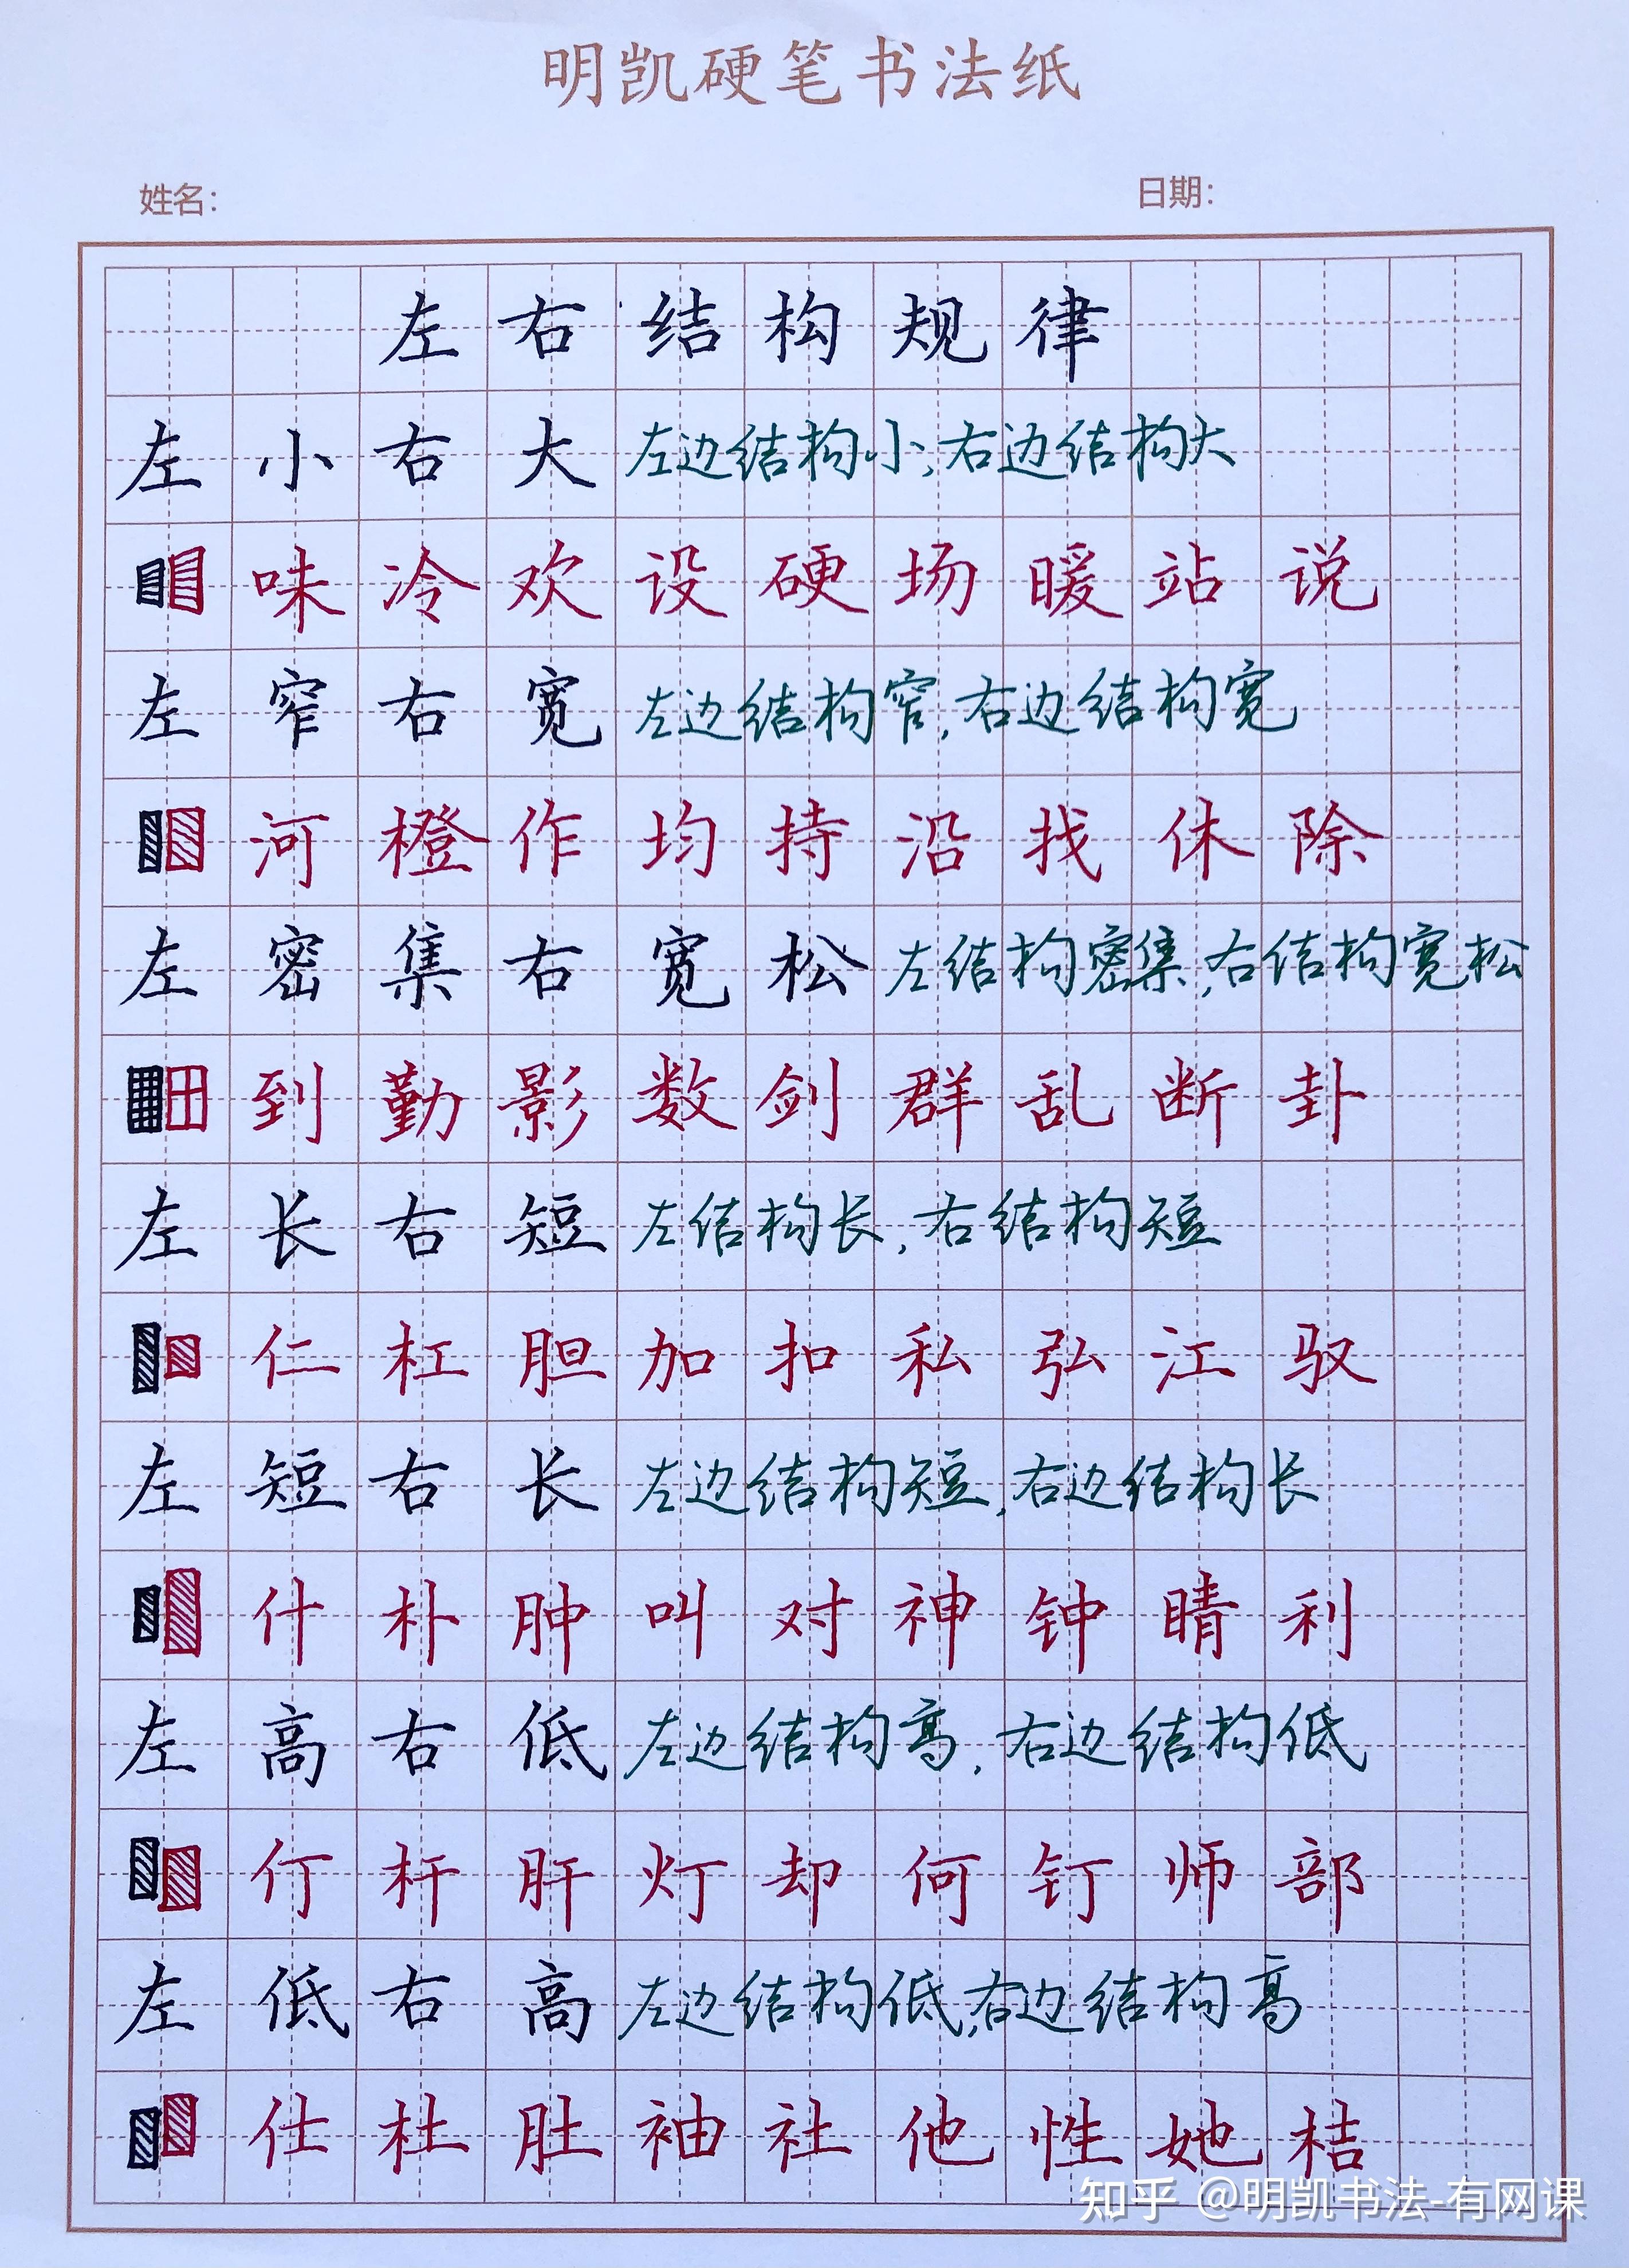 明凯硬笔书法纸
姓名： 日期：
左右结构规律
左小右大 左边结构小，右边结构大
味冷欢设硬场暖站说
左窄右宽 左边结构窄，右边结构宽
河橙作均持沿找休除
左密集右宽松 左结构密集，右结构宽松
到勤影数剑群乱断卦
左长右短 左结构长，右结构短
仁杠胆加扣私弘江驭
左短右长 左边结构短，右边结构长
什朴肿叫对神钟睛利
左高右低 左边结构高，右边结构低
仃杆肝灯却何钉师部
左低右高 左边结构低，右边结构高
仕杜肚袖社他性她桔
知乎 @明凯书法-有网课